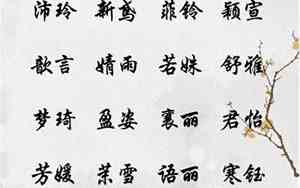 沛玲 新鸢 菲铃 颖宣
歆言 婧雨 若姝 舒雅
梦琦 盈姿 襄丽 君怡
芳媛 茉雪 语丽 寒钰